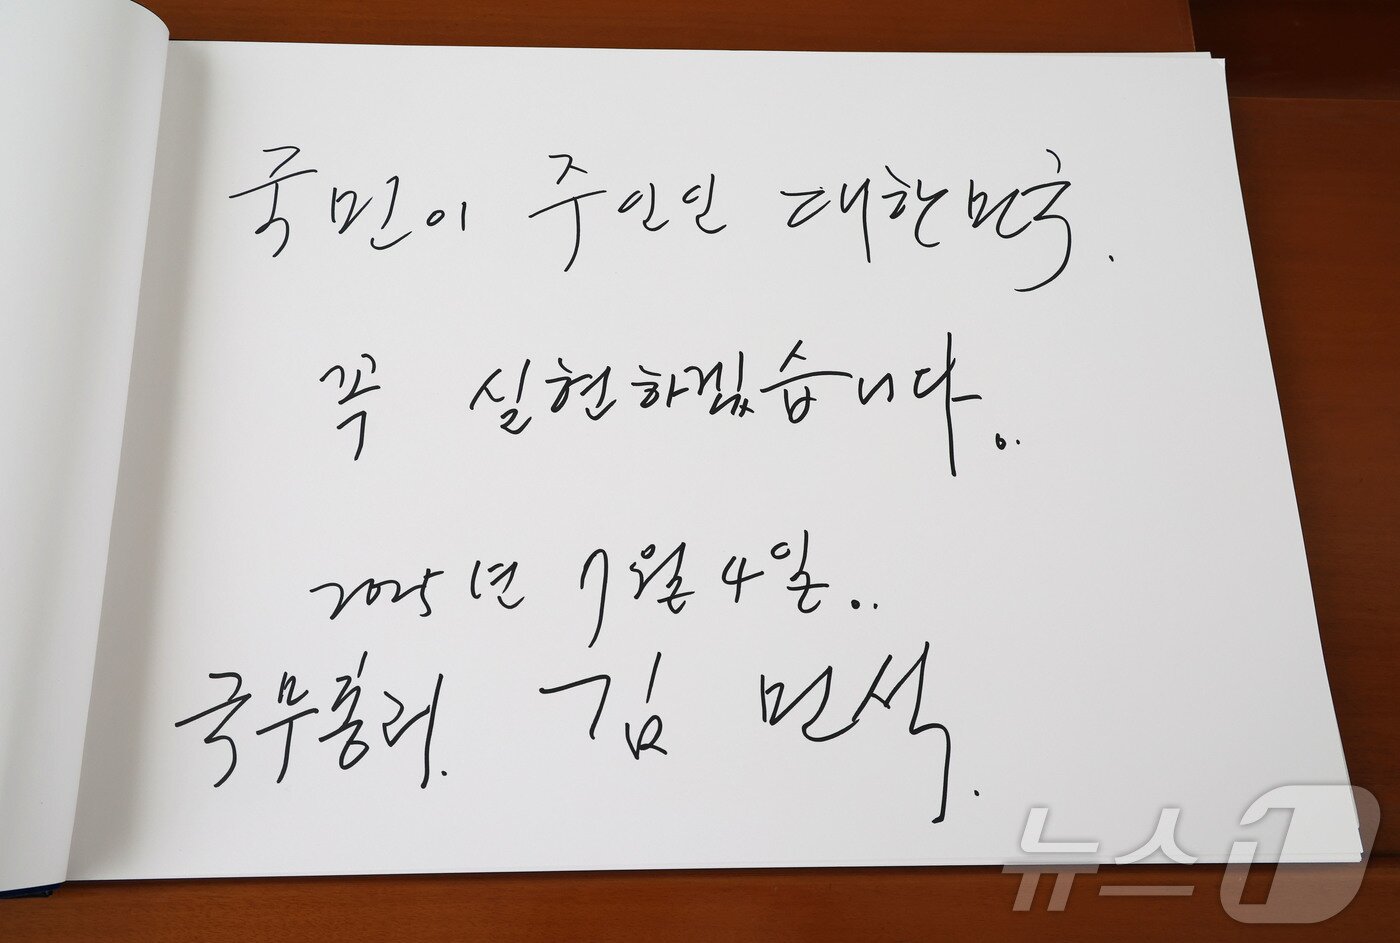 국민이 주인인 대한민국.
꼭 실현하겠습니다..
2025년 7월 4일..
국무총리. 김 민석.
뉴스1